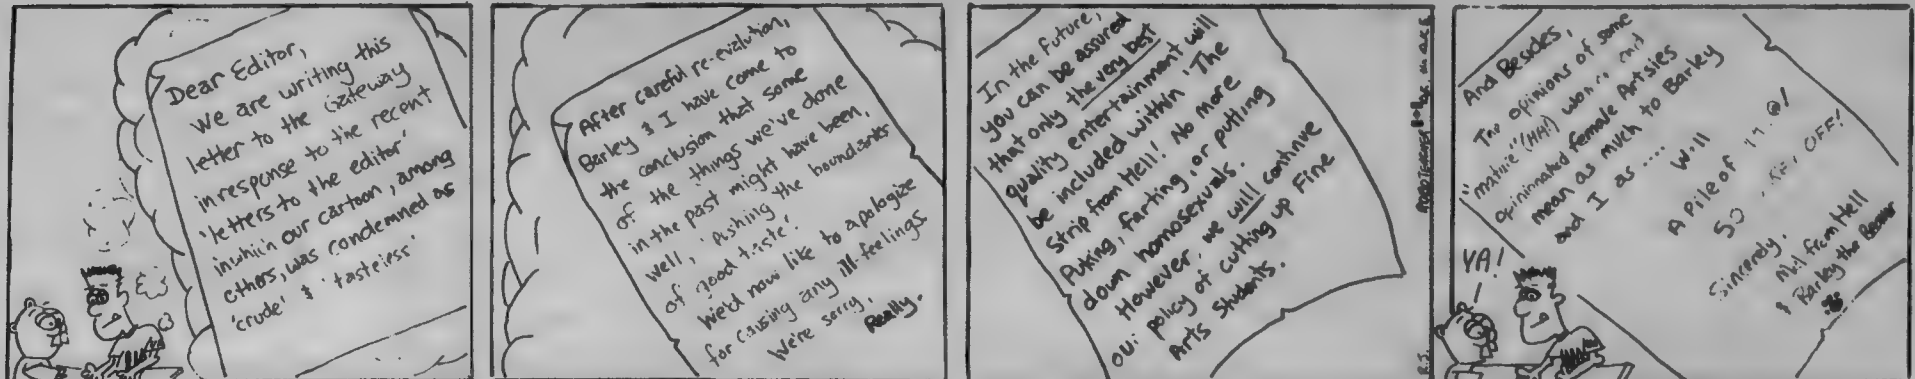 Dear Editor,
We are writing this
letter to the Gateway
in response to the recent
'letters to the editor'
in which our cartoon, among
others, was condemned as
'crude' & 'tasteless'
After careful re-evalution,
Barley & I have come to
the conclusion that some
of the things we've done
in the past might have been,
well, 'pushing the boundaries
of good taste'.
We'd now like to apologize
for causing any ill-feelings.
We're sorry.
Really.
In the future,
you can be assured
that only the very best
quality entertainment will
be included within 'The
Strip from Hell! No more
Puking, farting, or putting
down homosexuals.
However, we will continue
our policy of cutting up Fine
Arts Students.
R.S.
And Besides,
The opinions of some
"mature" (HA!) and
opininated female Artsies
mean as much to Barley
and I as ....
A Pile of
SO OFF!
Sincerely,
from Hell
& Barley the Beaver
YA!